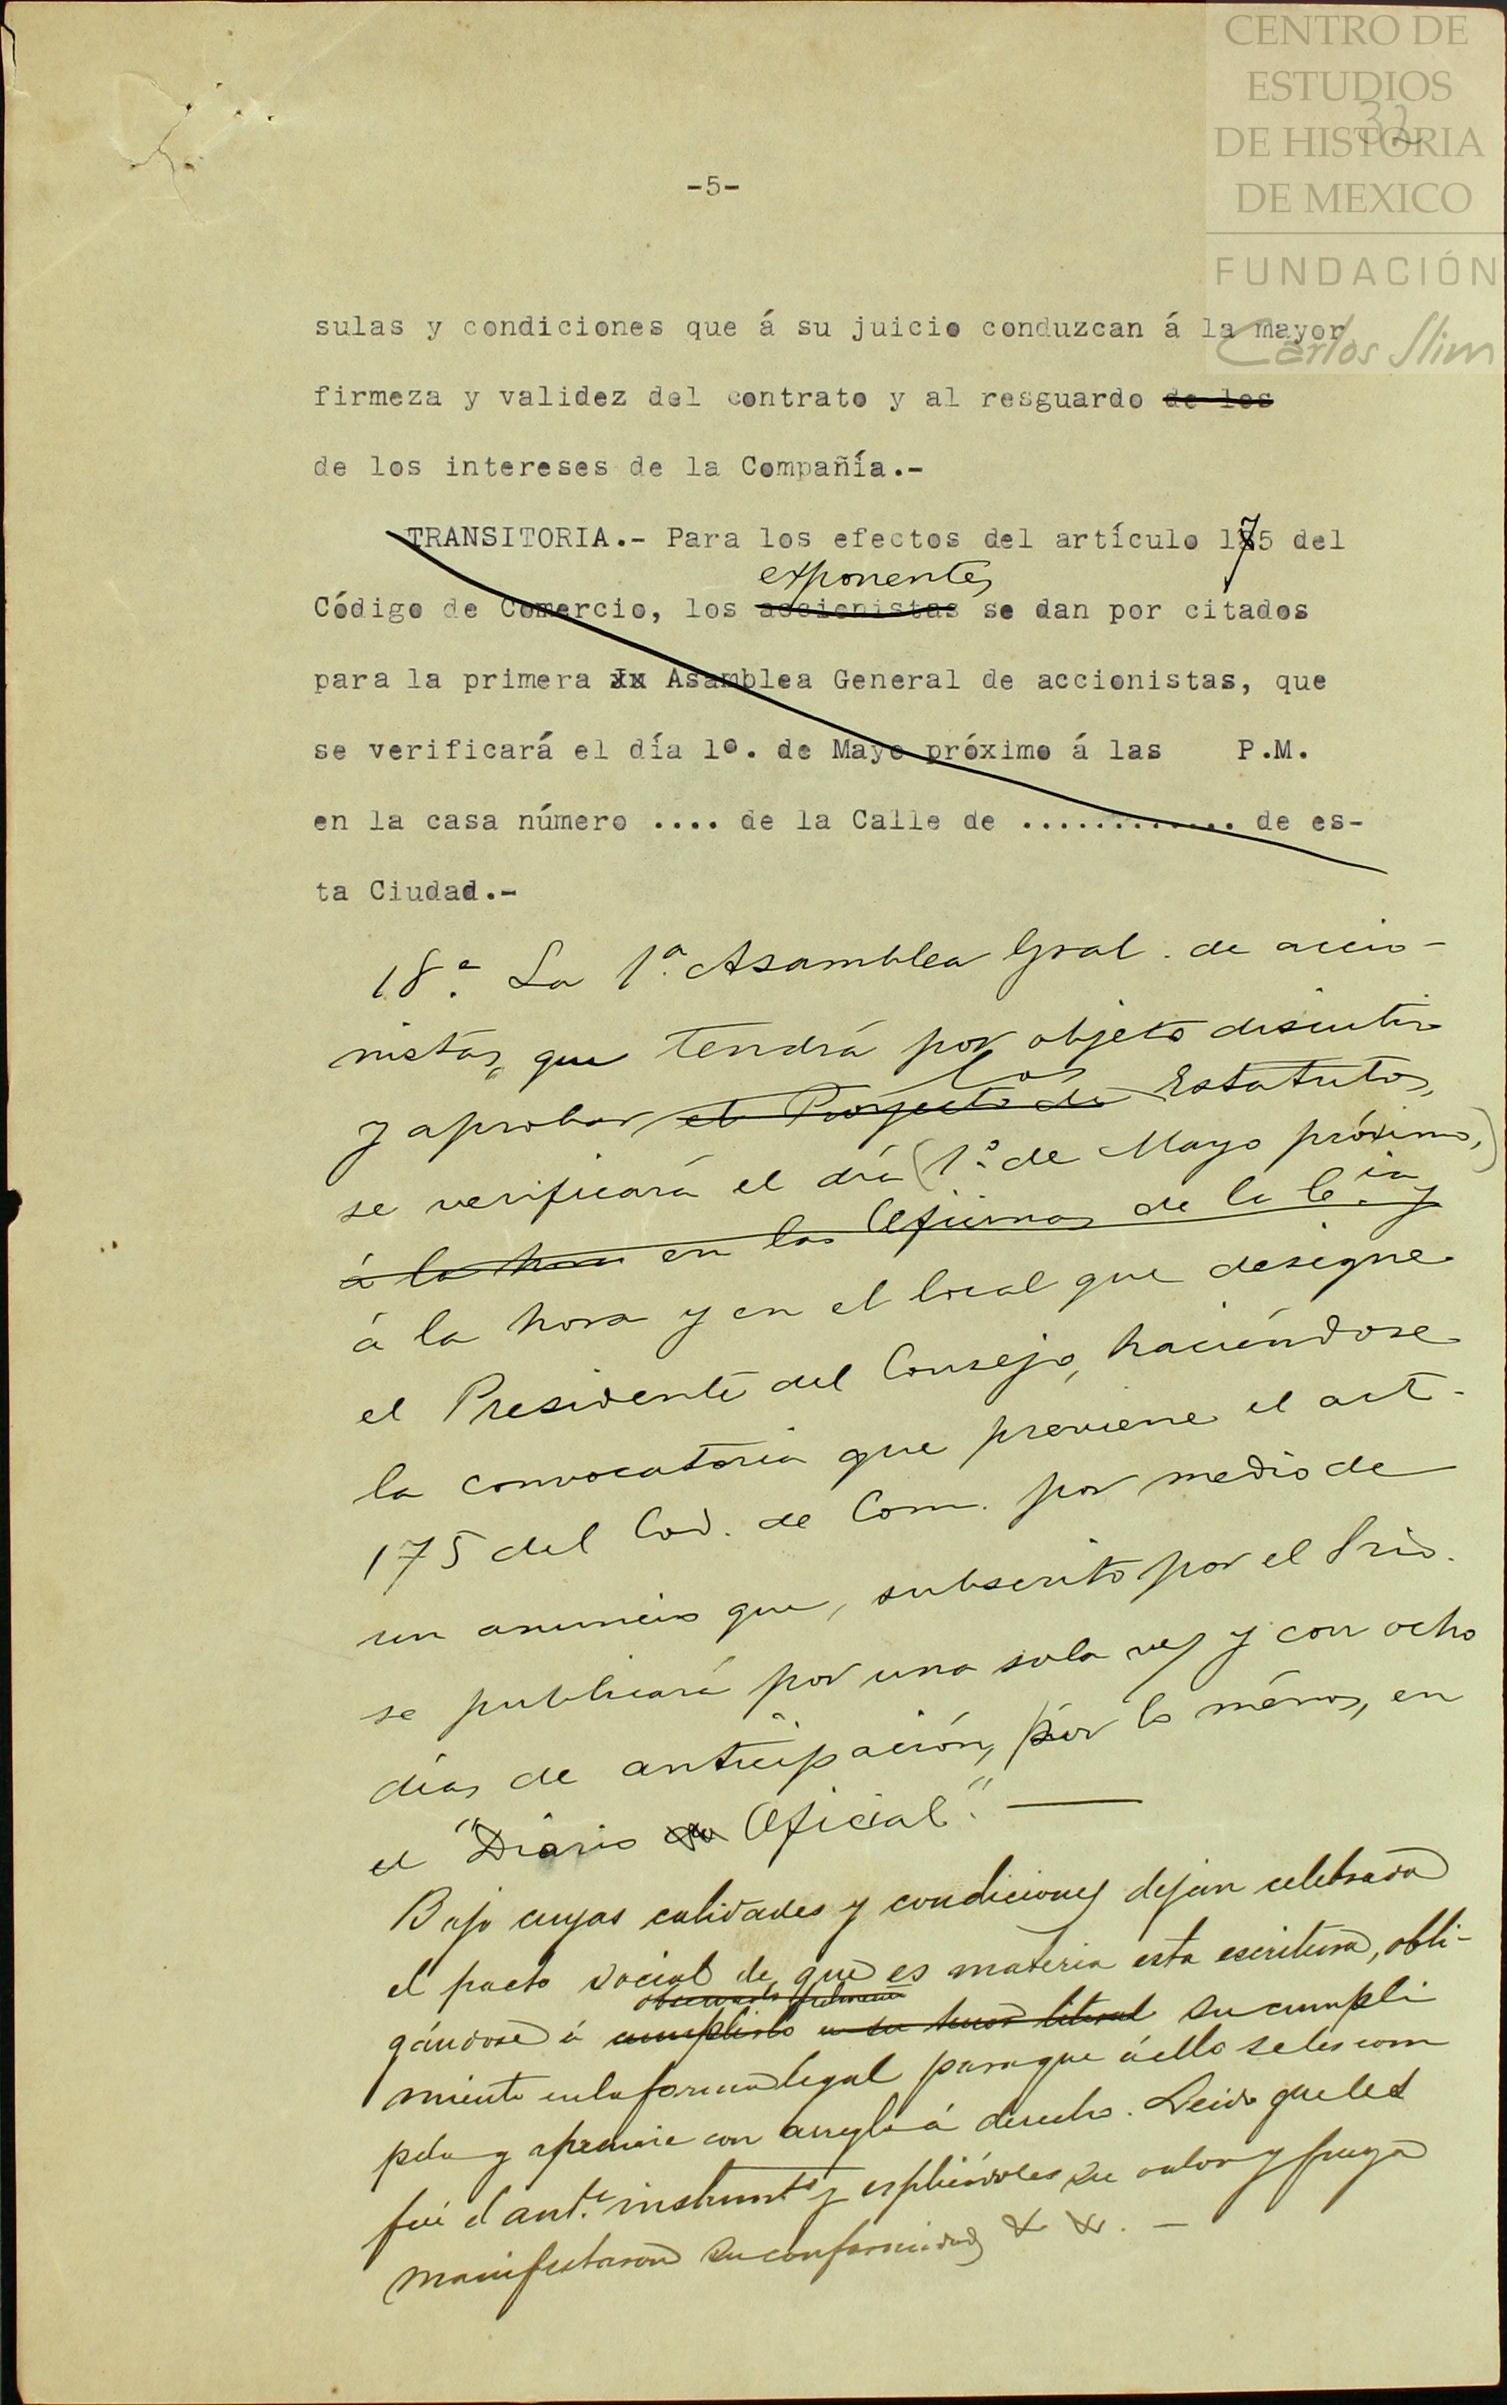 CENTRO DE
ESTUDIOS
DE HISTORIA
DE MEXICO
FUNDACIÓN
Carlos Slim
32
-5-
sulas y condiciones que á su juicio conduzcan á la mayor
firmeza y validez del contrato y al resguardo de los
de los intereses de la Compañía.-
TRANSITORIA.- Para los efectos del artículo 175 del
exponentes
Código de Comercio, los accionistas se dan por citados
para la primera Asamblea General de accionistas, que
se verificará el día 1º. de Mayo próximo á las P.M.
en la casa número .... de la Calle de ............ de es-
ta Ciudad.-
18.ª La 1.ª Asamblea Gral. de accio-
nistas, que tendrá por objeto discutir
los
y aprobar el Proyecto de Estatutos,
se verificará el día (1.º de Mayo próximo,)
á la hora en las Oficinas de la C.ía y
á la hora y en el local que designe
el Presidente del Consejo, haciéndose
la convocatoria que previene el art.
175 del Cod. de Com. por medio de
un anuncio que, subscrito por el Srio.
se publicará por una sola vez y con ocho
días de anticipación, por lo ménos, en
el "Diario Oficial".—
Bajo cuyas calidades y condiciones dejan celebrada
el pacto social de que es materia esta escritura, obli-
gándose á cumplirlo a su tenor literal su cumpli
miento en la forma legal para que á ello se les com
pela y apremie con arreglo á derecho. Leido que les
fué el ant.e instrumto y esplicándoles su valor y fuerza
manifestaron su conformidad